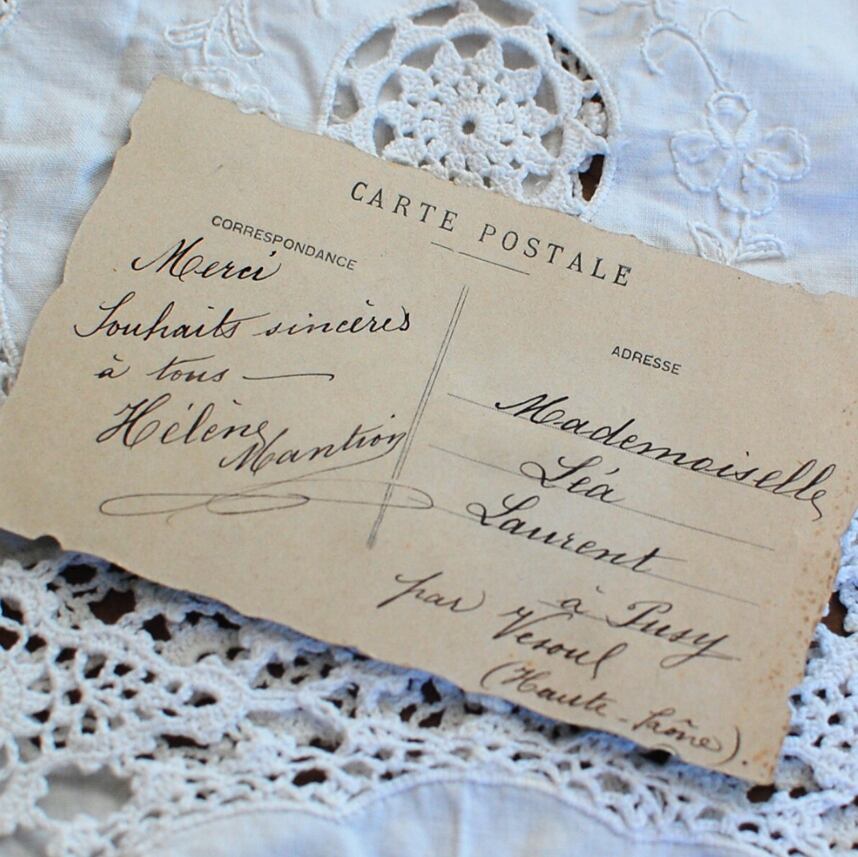 CARTE POSTALE
CORRESPONDANCE
Merci
Souhaits sincères
à tous —
Hélène
Mantion
ADRESSE
Mademoiselle
Léa
Laurent
à Pusy
par Vesoul
(Haute-Saône).